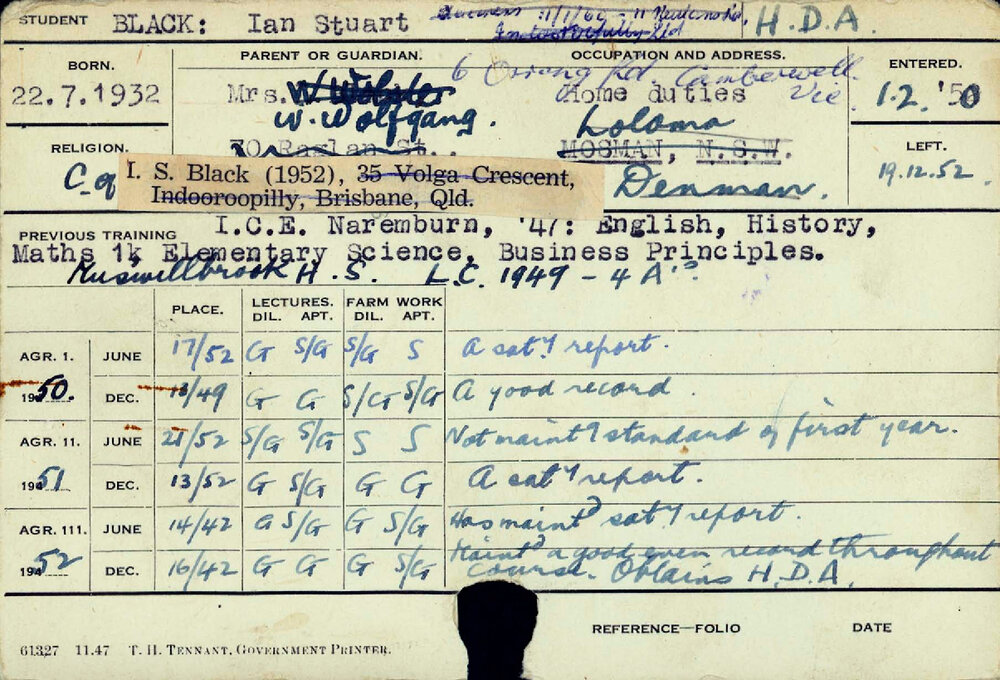 STUDENT BLACK: Ian Stuart 11/1/60 Indooroopilly Qld H.D.A.
BORN. PARENT OR GUARDIAN. OCCUPATION AND ADDRESS. ENTERED.
6 Orrong Rd. Camberwell. Vic
22.7.1932 Mrs. W. Webster Home duties 1.2.'50
W. Wolfgang. Loloma
RELIGION. 70 Raglan St.. MOSMAN, N.S.W. LEFT.
C. of Denman. 19.12.52.
I. S. Black (1952), 35 Volga Crescent,
Indooroopilly, Brisbane, Qld.
PREVIOUS TRAINING I.C.E. Naremburn, '47: English, History,
Maths 1k Elementary Science, Business Principles.
Muswellbrook H.S. L.C. 1949 - 4 A's
PLACE. LECTURES. FARM WORK
DIL. APT. DIL. APT.
AGR. 1. JUNE 17/52 G S/G S/G S A sat'y report.
1950. DEC. 13/49 G G S/G S/G A good record
AGR. 11. JUNE 21/52 S/G S/G S S Not maint'g standard of first year.
1951 DEC. 13/52 G S/G G G A sat'y report.
AGR. 111. JUNE 14/42 G S/G G S/G Has maint'd sat'y report.
1952 DEC. 16/42 G G G S/G Maint'd a good even record throughout
course. Obtains H.D.A.
REFERENCE—FOLIO DATE
61327 11.47 T. H. TENNANT, GOVERNMENT PRINTER.